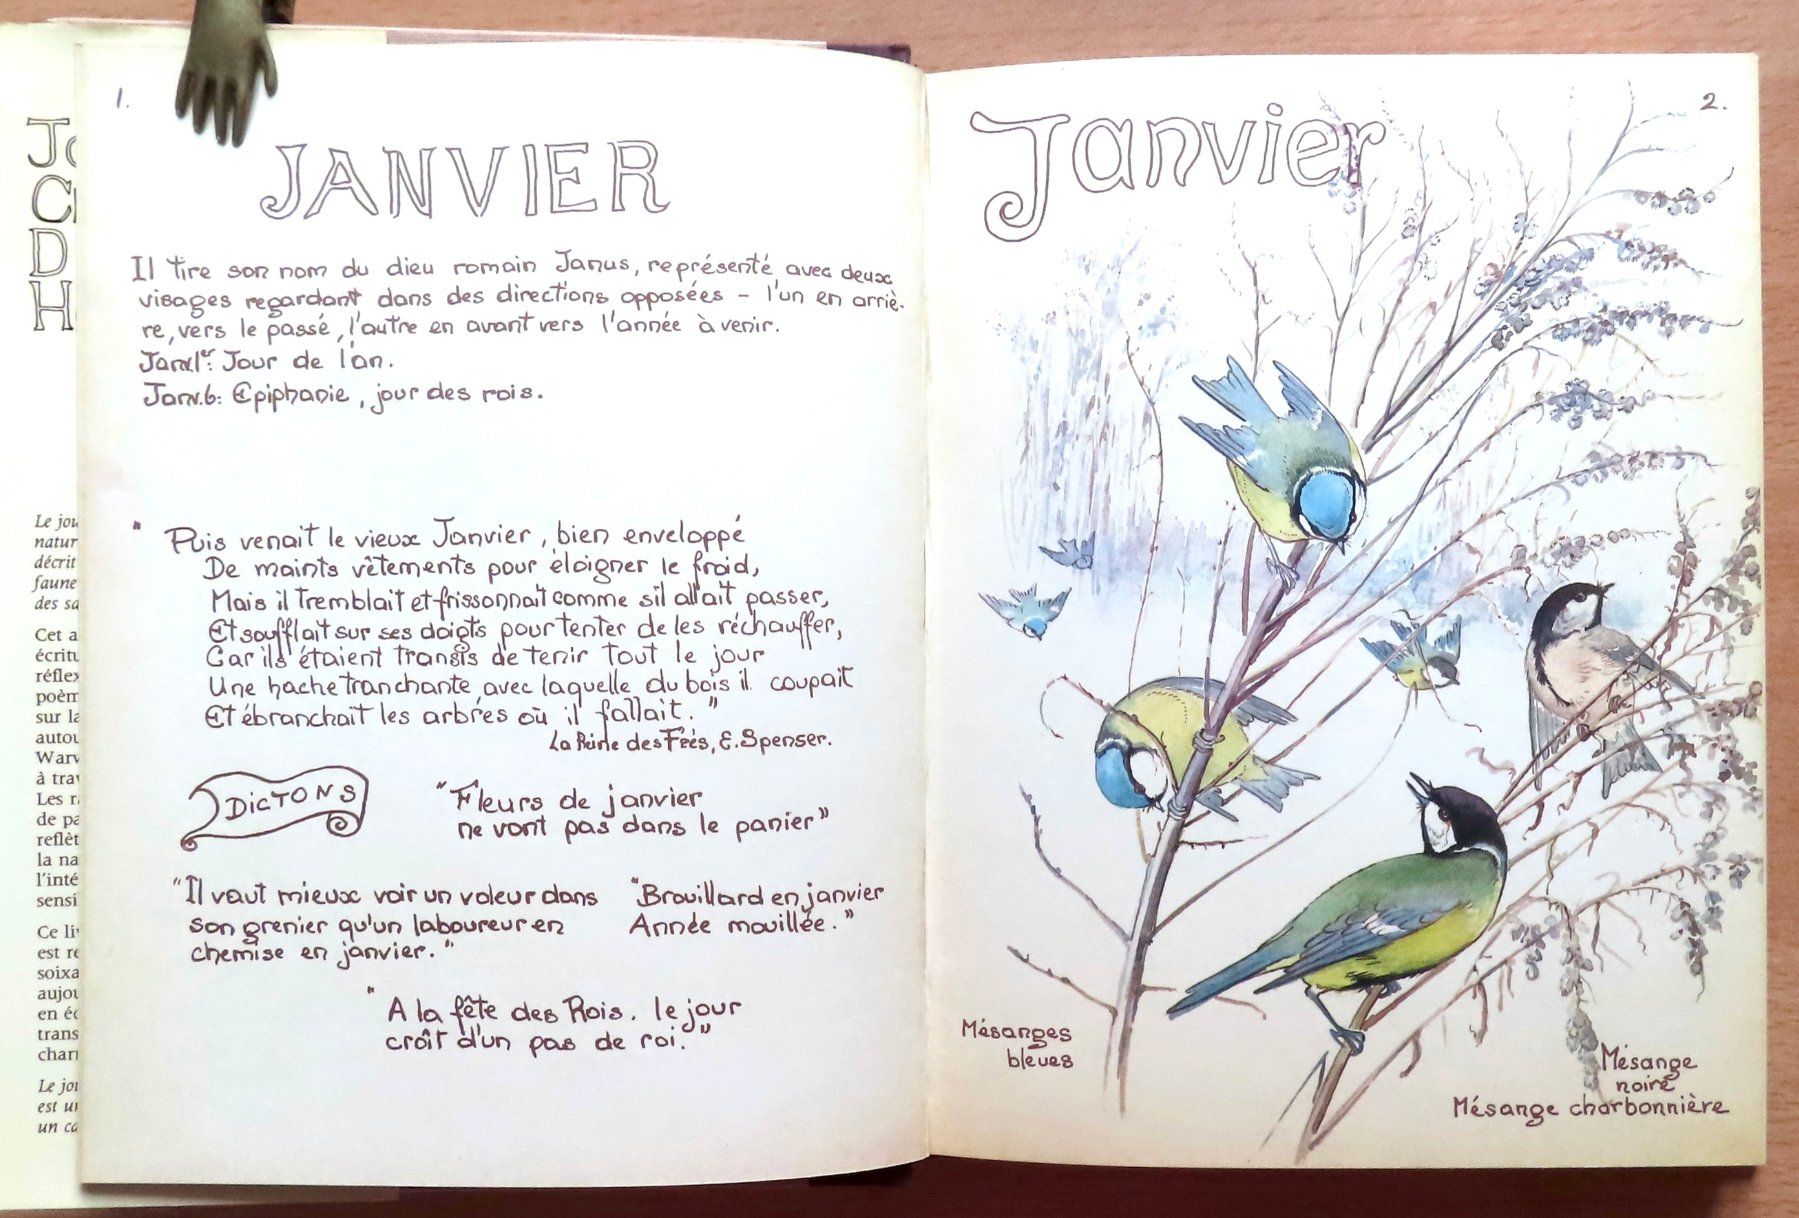 1.
JANVIER
Il tire son nom du dieu romain Janus, représenté avec deux
visages regardant dans des directions opposées – l'un en arriè-
re, vers le passé, l'autre en avant vers l'année à venir.
Janv.1er: Jour de l'an.
Janv.6: Epiphanie, jour des rois.
"Puis venait le vieux Janvier, bien enveloppé
De maints vêtements pour éloigner le froid,
Mais il tremblait et frissonnait comme s'il allait passer,
Et soufflait sur ses doigts pour tenter de les réchauffer,
Car ils étaient transis de tenir tout le jour
Une hache tranchante avec laquelle du bois il coupait
Et ébranchait les arbres où il fallait."
La Reine des Fées, E. Spenser.
DICTONS
"Fleurs de janvier
ne vont pas dans le panier"
"Il vaut mieux voir un voleur dans
son grenier qu'un laboureur en
chemise en janvier."
"Brouillard en janvier
Année mouillée."
"A la fête des Rois. le jour
croît d'un pas de roi."
2.
Janvier
Mésanges
bleues
Mésange
noire
Mésange charbonnière
Le jou
natur
décrit
faune
des sa
Cet a
écritu
réflex
poèm
sur la
autou
Warv
à trav
Les r
de pa
reflèt
la na
l'inté
sensi
Ce li
est re
soixa
aujou
en éc
trans
char
Le jou
est u
un ca